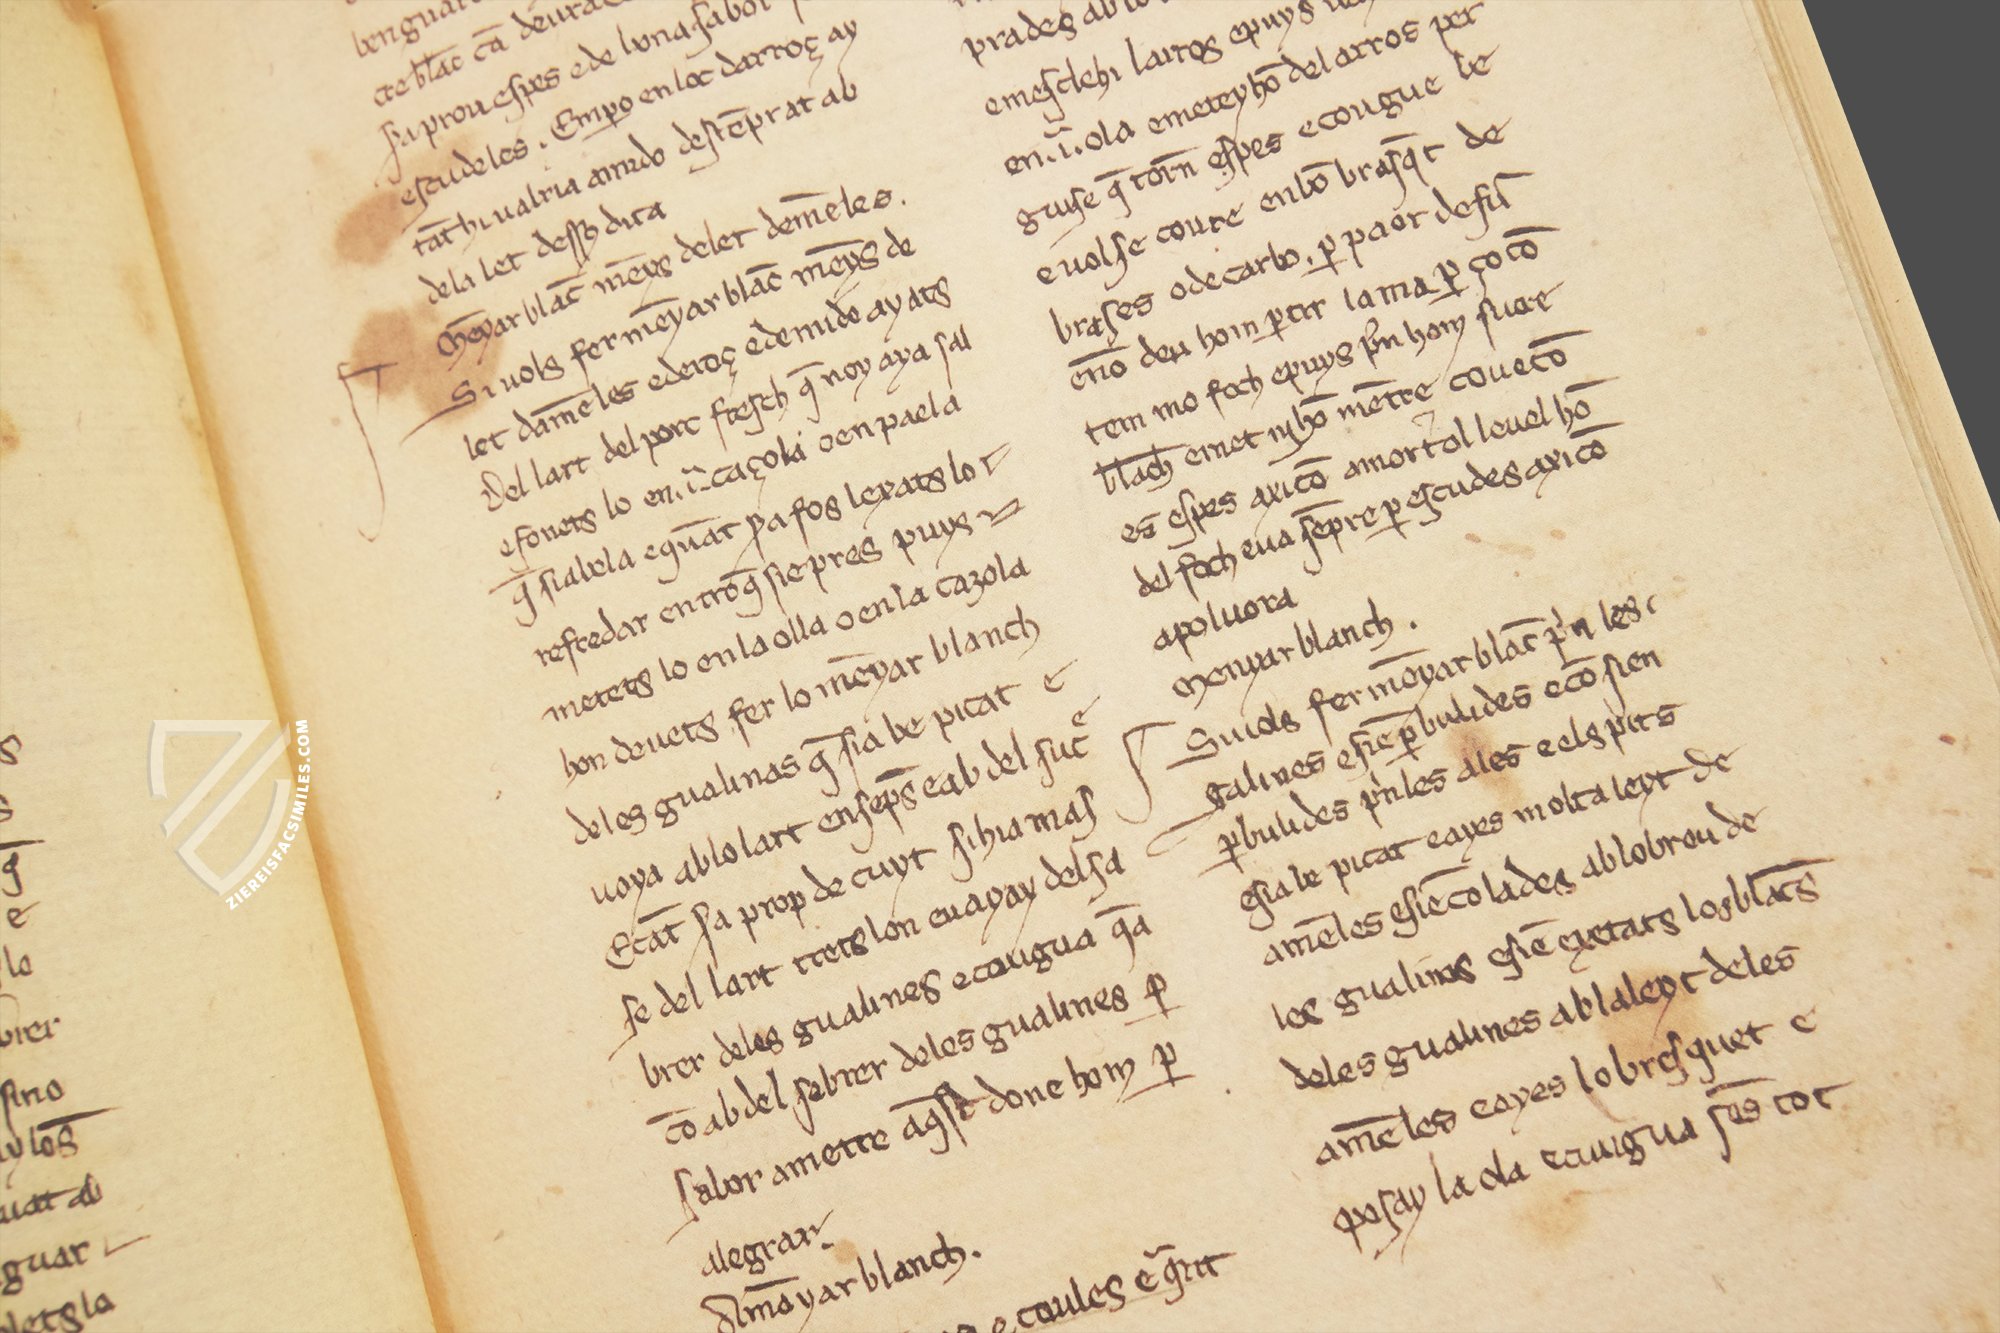 cre blāc cā deura
sa prou espes e de bona sabor
escudeles. Empo en loc darroç ay
tāt hi valria amido destēprat ab
de la let dessꝯ dita
Mēyar blāc mēys de let demēles.
Si vols fer mēyar blāc mēys de
let damēles e deroç e de mido ayats
del lart del porc fresch q̄ noy aya sal
e fonets lo en .i. caçola o en paela
q̄ sia bela e quāt sa fos lexats lo r
refredar entro q̄ sie pres puys
metets lo en la olla o en la cazola
hon deuets fer lo mēyar blanch
de les gualinas q̄ sia be picat e
uoya ab lo lart ensēps e ab del suc e
E cāt sa prop de cuyt si hia mas
se del lart trets lon e uayay del sa
brer deles gualines e cougua q̄a
cō ab del sabrer deles gualines p̱
sabor a metre aq̄st done hom p̱
alegrar
Almōyar blanch.
e coules e q̄nt
prades ab lo
e mesclehi larros e puys
en .i. ola e meteyhō del arros per
guise q̄ torn espes e cougue be
e uolse coure en bō brasq̄t de
brases o de carbo. p̱ paor de fū
enō deu hom p̱tir la ma p̱ ço cō
tem mo foch e puys pn hom sucre
blāch e met nyhō mētre coue cō
es espes axi cō amortol leuel hō
del foch e ua sēpre p̱ escudes axi cō
a poluora
Menyar blanch.
Si uols fer mēyar blāc pn les
galines e sie p̱bulides e cō sien
p̱bulides pn les ales e els pits
e sia be picat e ayes molta leyt de
amēles e siē colades ab lo brou de
les gualines e siē gitats los blācs
deles gualines ab la leyt deles
amēles e ayes lo bresquet e
posay la ola e cuigua sēs tot
brer
sino
y los
uat ab
guar
lets la
ZIEREISFACSIMILES.COM